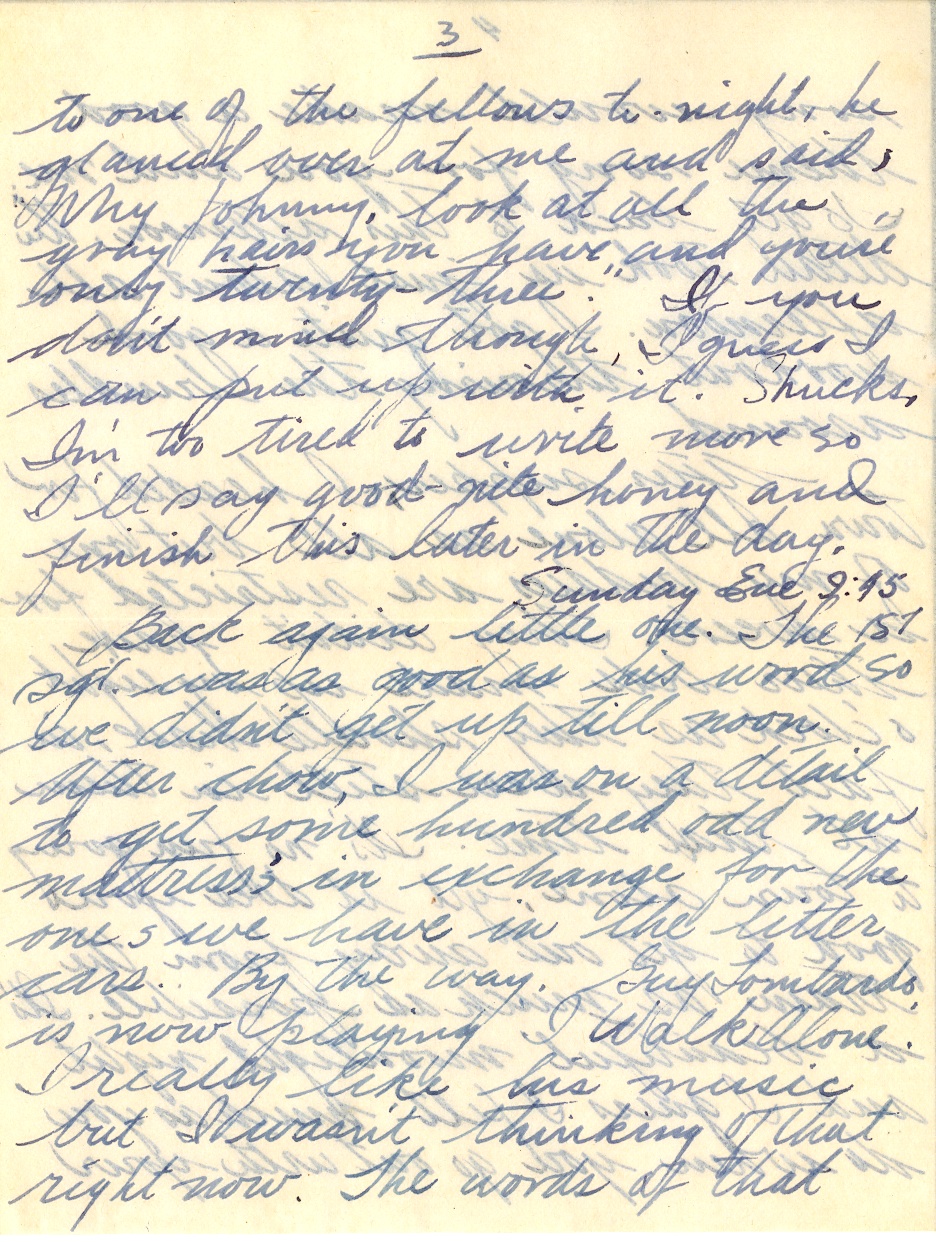 3
to one of the fellows to-night, he
glanced over at me and said,
"Why Johnny, look at all the
gray hairs you have, and you're
only twenty-three." If you
don't mind though, I guess I
can put up with it. Shucks,
I'm too tired to write more so
I'll say good-nite honey and
finish this later in the day.
Sunday Eve 9:45
Back again little one. The 1st
sgt. was as good as his word so
we didn't get up till noon.
After chow, I was on a detail
to get some hundred odd new
mattress's in exchange for the
ones we have in the litter
cars. By the way. Guy Lombardo
is now playing I Walk Alone.
I really like his music
but I wasn't thinking of that
right now. The words of that